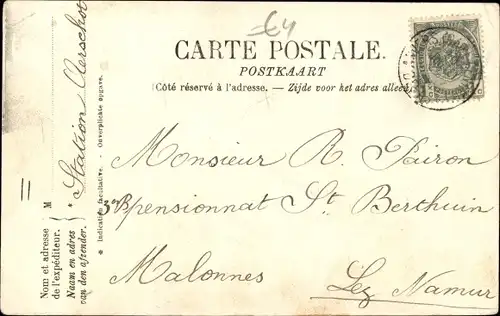 64
CARTE POSTALE.
POSTKAART
(Côté réservé à l'adresse. — Zijde voor het adres alleen
Monsieur R. Pairon
3e pensionnat St Berthuin
Malonnes
Lez Namur
Nom et adresse de l'expéditeur. } M
Naam en adres van den afzender. } *
Station Aerschot
* Indication facultative. - Onverplichte opgave.